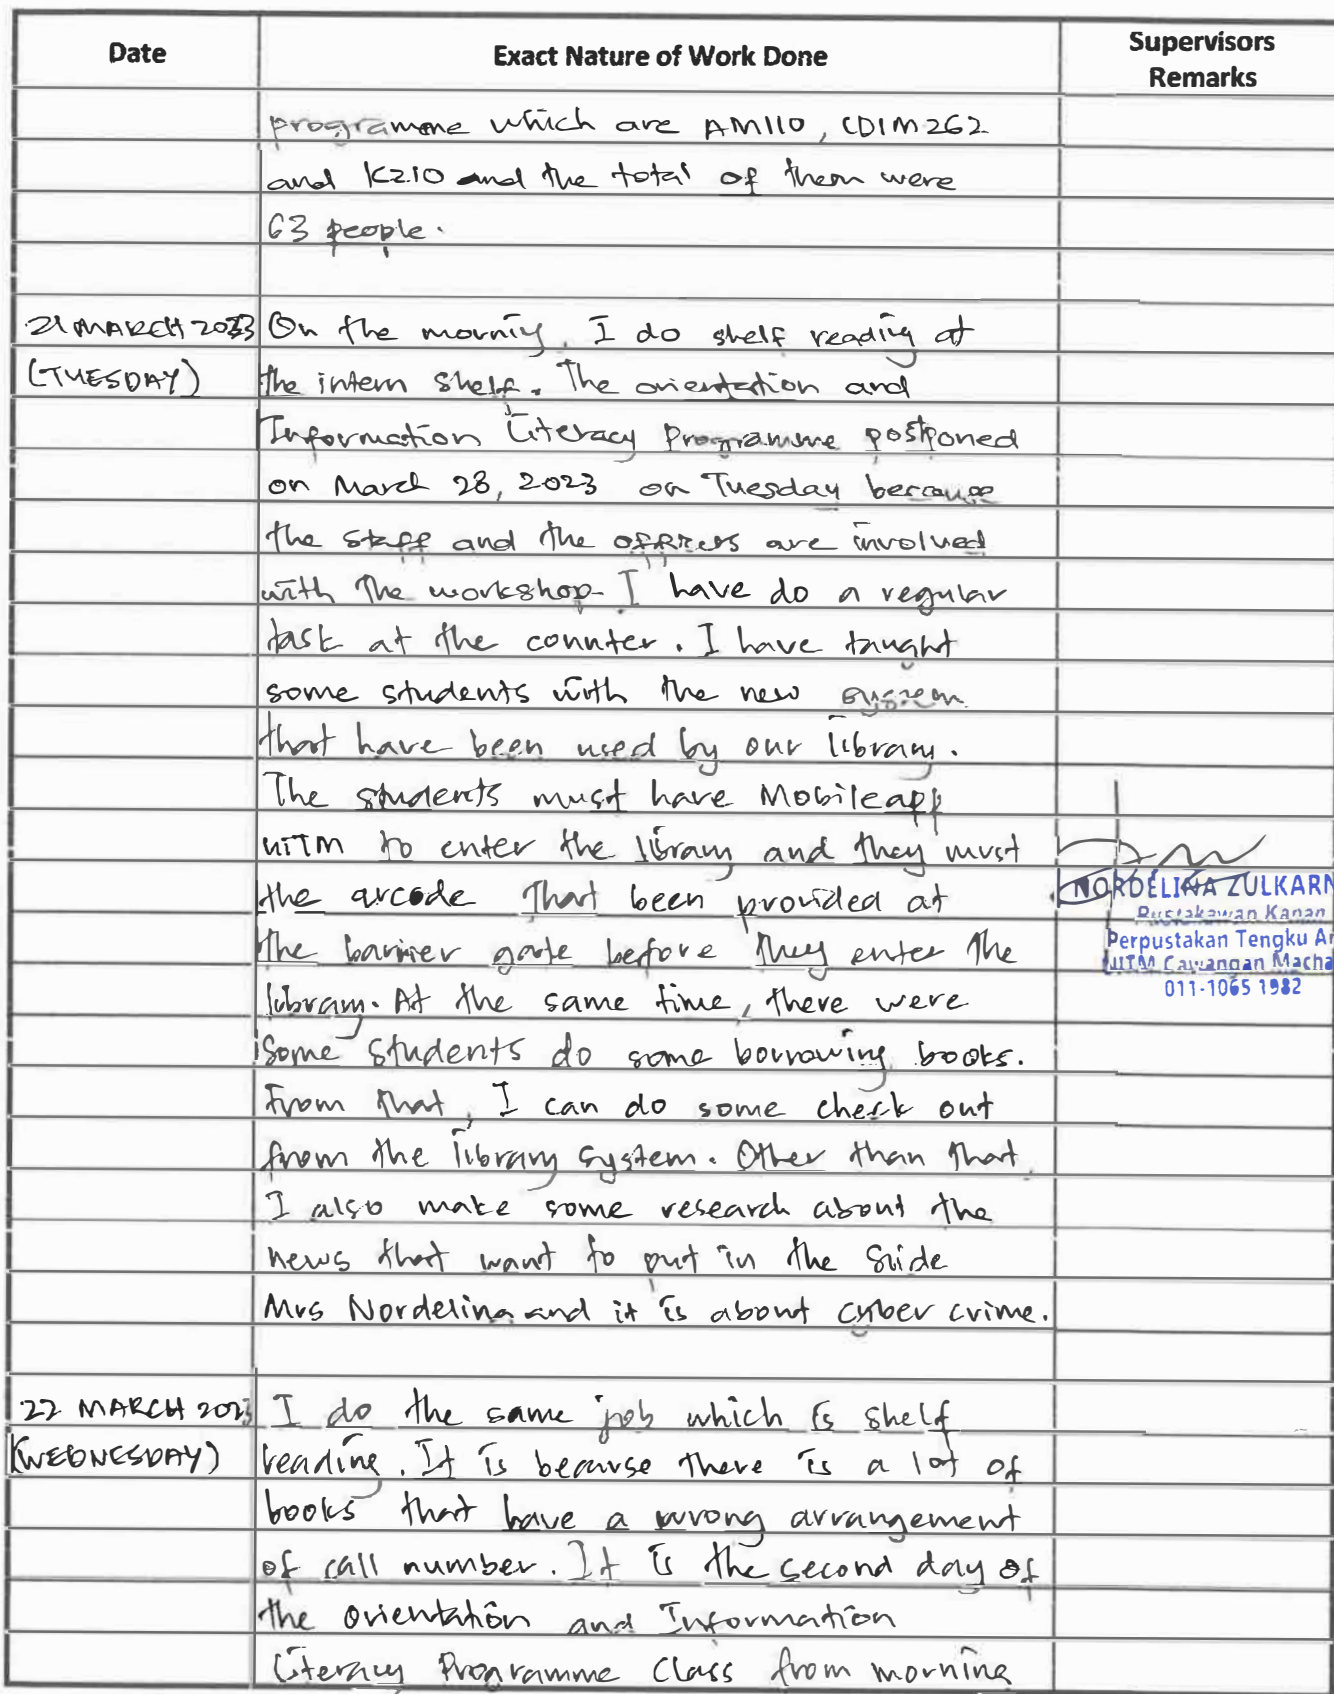 Date
Exact Nature of Work Done
Supervisors
Remarks
programme which are AM110, CDIM262
and K210 and the total of them were
63 people.
21 MARCH 2023
(TUESDAY)
On the morning, I do shelf reading at
the intern shelf. The orientation and
Information Literacy Programme postponed
on March 28, 2023 on Tuesday because
the staff and the officers are involved
with the workshop. I have do a regular
task at the counter. I have taught
some students with the new system
that have been used by our library.
The students must have Mobileapp
UiTM to enter the library and they must
the arcode that been provided at
the barrier gate before they enter the
library. At the same time, there were
some students do some borrowing books.
From that, I can do some check out
from the library system. Other than that,
I also make some research about the
news that want to put in the slide
Mrs Nordelina and it is about cyber crime.
NORDELINA ZULKARN
Pustakawan Kanan
Perpustakan Tengku An
UITM Cawangan Macha
011-1065 1982
22 MARCH 2023
(WEDNESDAY)
I do the same job which is shelf
reading. It is because there is a lot of
books that have a wrong arrangement
of call number. It is the second day of
the orientation and Information
Literacy Programme Class from morning